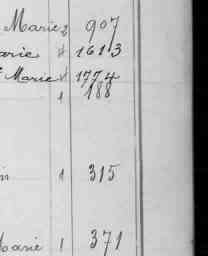 Marie 2 907
arie 4 1613
Marie 4 1774
1 188
1 315
Marie 1 371